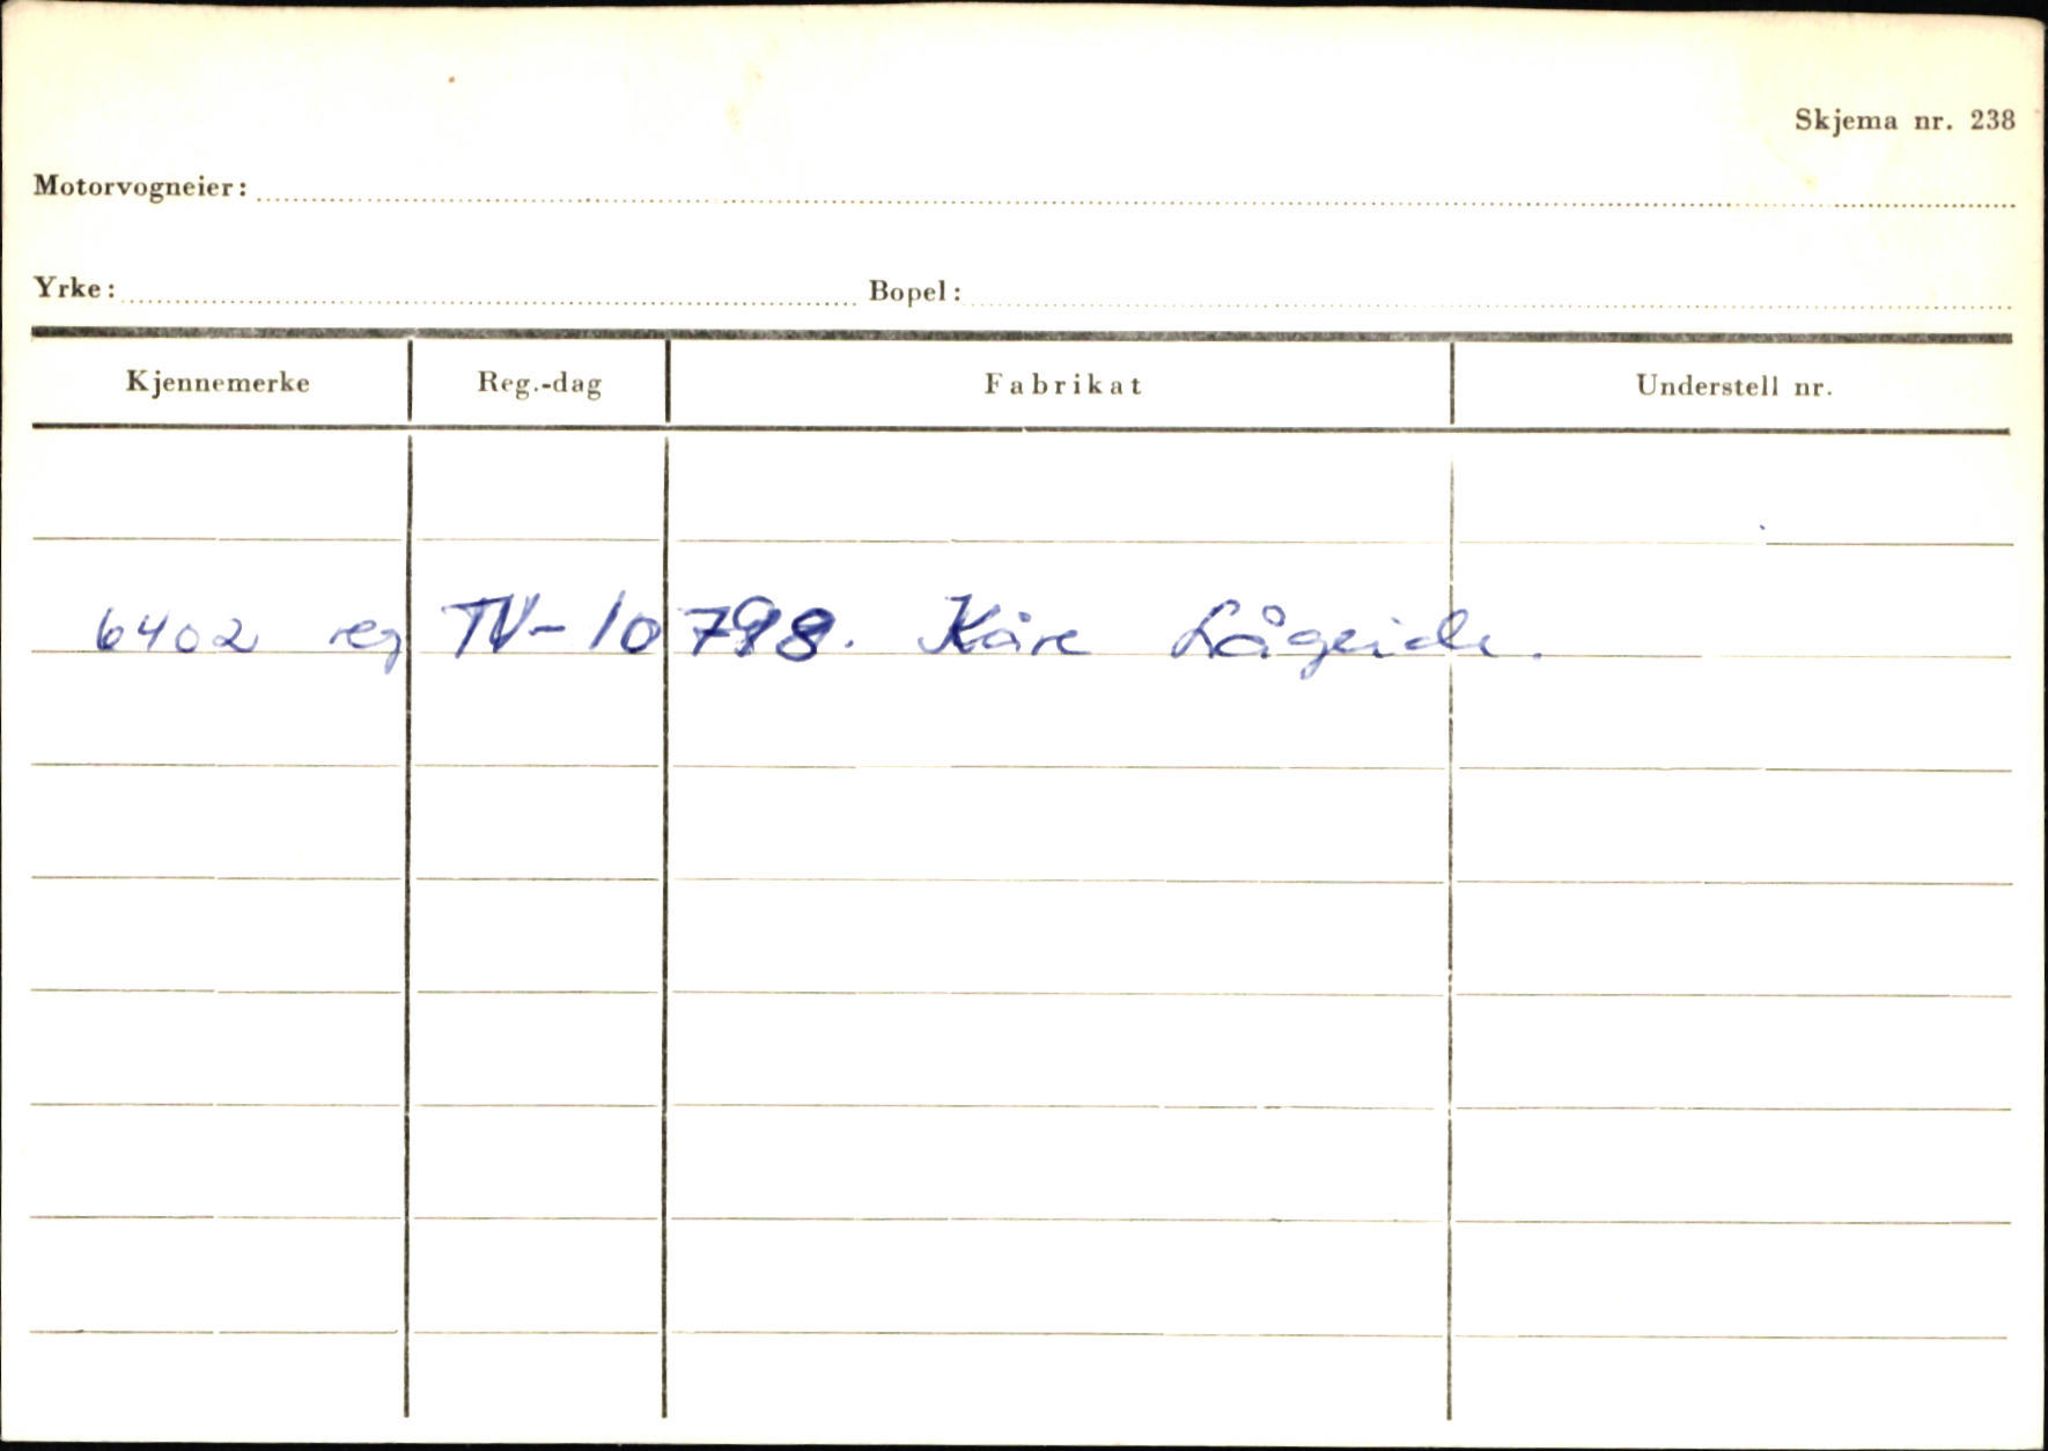 Skjema nr. 238
Motorvogneier:
Yrke: Bopel:
Kjennemerke Reg.-dag Fabrikat Understell nr.
6402 reg TV-10798. Kåre Lågeide.